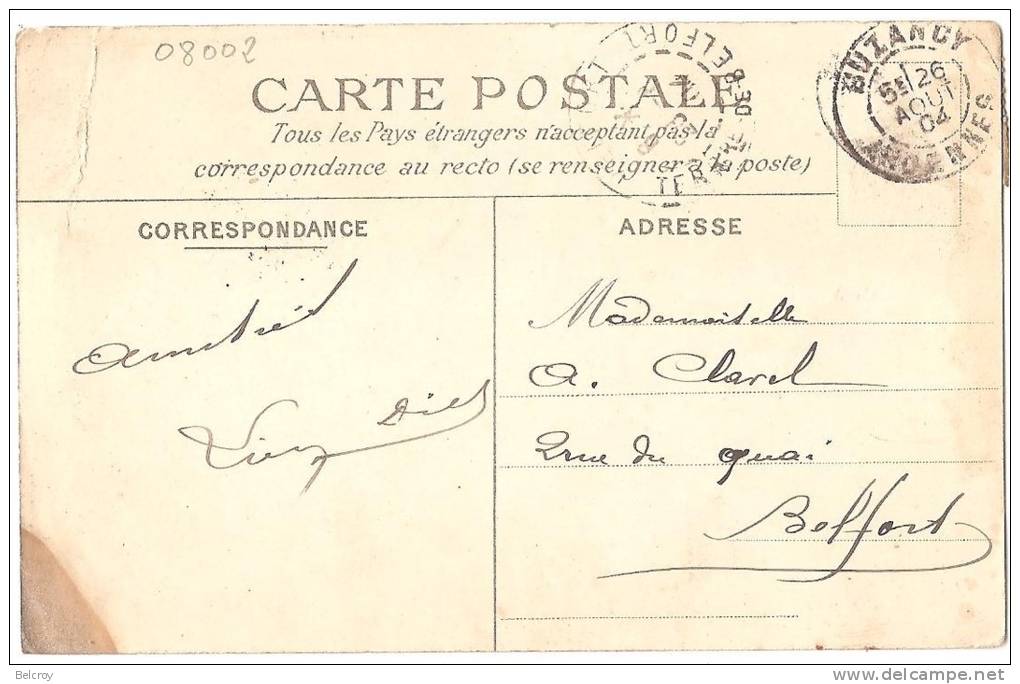 08002
CARTE POSTALE
Tous les Pays étrangers n'acceptant pas la
correspondance au recto (se renseigner à la poste)
BUZANCY
5E 26
AOUT
04
ARDENNES
BELFORT
8-30
CORRESPONDANCE
Amitiés
ADRESSE
Mademoiselle
A. Clarel
2 rue du quai
Belfort
Belcroy
www.delcampe.net